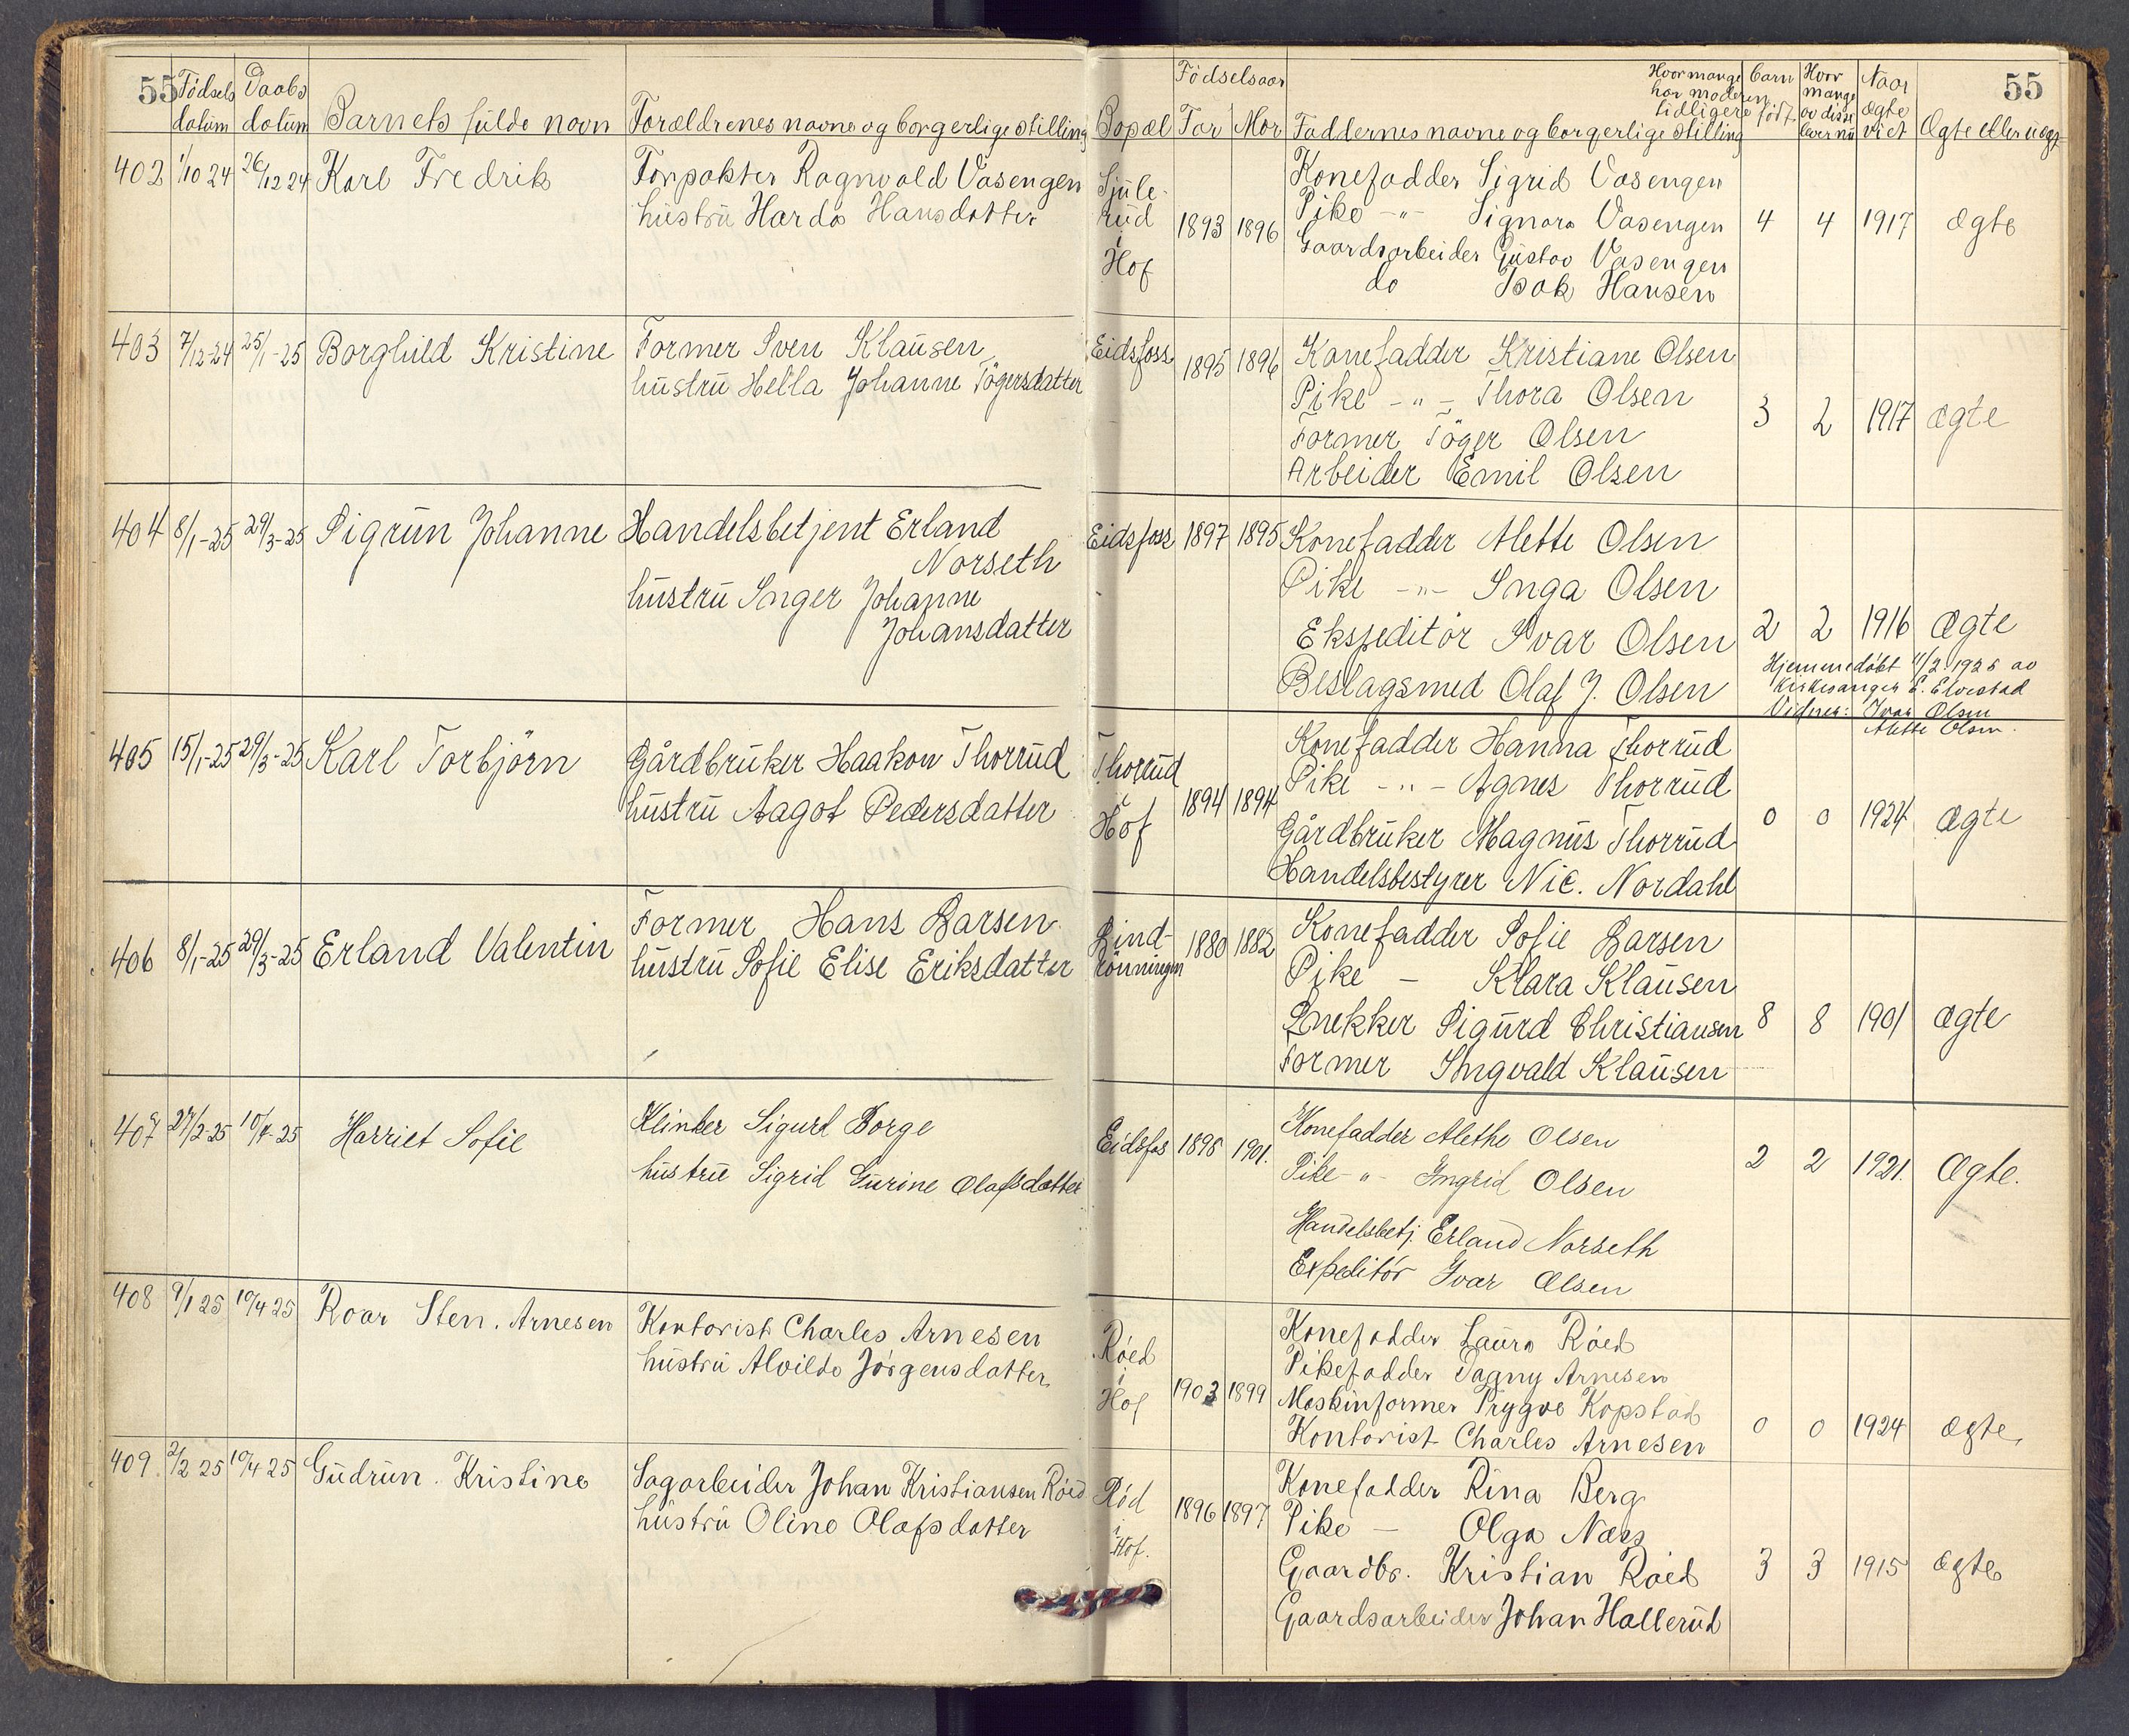 55 Födsels Daabs
datum datum Barnets fulde navn Forældrenes navne og borgerlige stilling
Födselsaar Hvor mange Barn Hvor Naar 55
har moderen mange ægte
tidligere födt av disse viet
Bopæl Far Mor Faddernes navne og borgerlige stilling lever nu Ægte eller uægt
402 1/10 24 26/12 24 Karl Fredrik Forpakter Ragnvald Vasengen
hüstrü Harda Hansdatter
Sjüle-
rüd
i
Hof
1893 1896
Konefadder Sigrid Vasengen
Pike -"- Signora Vasengen
Gaardsarbeider Güstav Vasengen
do Isak Hansen
4 4 1917 ægte
403 7/12-24 25/1-25 Borghild Kristine Former Sven Klaüsen
hüstrü Hella Johanne Tögersdatter
Eidsfoss 1895 1896
Konefadder Kristiane Olsen
Pike -"- Thora Olsen
Former Töger Olsen
Arbeider Emil Olsen
3 2 1917 ægte
404 8/1-25 29/3-25 Sigrün Johanne Handelsbetjent Erland
Norseth
hüstrü Inger Johanne
Johansdatter
Eidsfoss 1897 1895
Konefadder Alette Olsen
Pike -"- Inga Olsen
Ekspeditör Ivar Olsen
Beslagsmed Olaf J. Olsen
2 2 1916 Ægte
Hjemmedöbt 11/2 1925 av
Kirkesanger E. Elvestad
Vidner: Ivar Olsen
Alette Olsen.
405 15/1-25 29/3-25 Karl Torbjörn Gårdbrüker Haakon Thorrüd
hüstrü Aagot Pedersdatter
Thorrüd
i
Hof
1894 1894
Konefadder Hanna Thorrüd
Pike -"- Agnes Thorrüd
Gårdbrüker Magnüs Thorrüd
Handelsbestyrer Nic. Nordahl
0 0 1924 Ægte
406 8/1-25 29/3-25 Erland Valentin Former Hans Larsen
hüstrü Sofie Elise Eriksdatter
Lind-
rönningen
1880 1882
Konefadder Sofie Larsen
Pike - Klara Klaüsen
Snekker Sigürd Christiansen
Former Ingvald Klaüsen
8 8 1901 ægte
407 27/2-25 10/4-25 Harriet Sofie Klinker Sigurd Borge
hüstrü Sigrid Gurine Olafsdatter
Eidsfos 1898 1901.
Konefadder Alethe Olsen
Pike -"- Ingrid Olsen
Handelsbetj. Erland Norseth
Expeditör Ivar Olsen
2 2 1921. Ægte.
408 9/1 25 10/4 25 Roar Sten. Arnesen Kontorist Charles Arnesen
hüstrü Alvilde Jörgensdatter
Röed
i
Hof
1903 1899
Konefadder Laüra Röed
Pikefadder Dagny Arnesen
Maskinformer Trygve Kopstad
Kontorist Charles Arnesen
0 0 1924 ægte
409. 2/2 25 10/4 25 Güdrün. Kristine Sagarbeider Johan Kristiansen Röed
hüstrü Oline Olafsdatter
Röd
i
Hof.
1896 1897
Konefadder Rina Berg
Pike - Olga Næss
Gaardbr. Kristian Röed
Gaardsarbeider Johan Hallerüd
3 3 1915 ægte